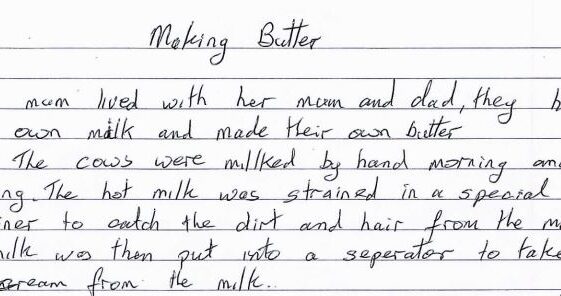 Making Butter
mum lived with her mum and dad, they h
own milk and made their own butter
The cows were milked by hand morning an
ng. The hot milk was strained in a special
iner to catch the dirt and hair from the m
ilk was then put into a seperator to take
cream from the milk.